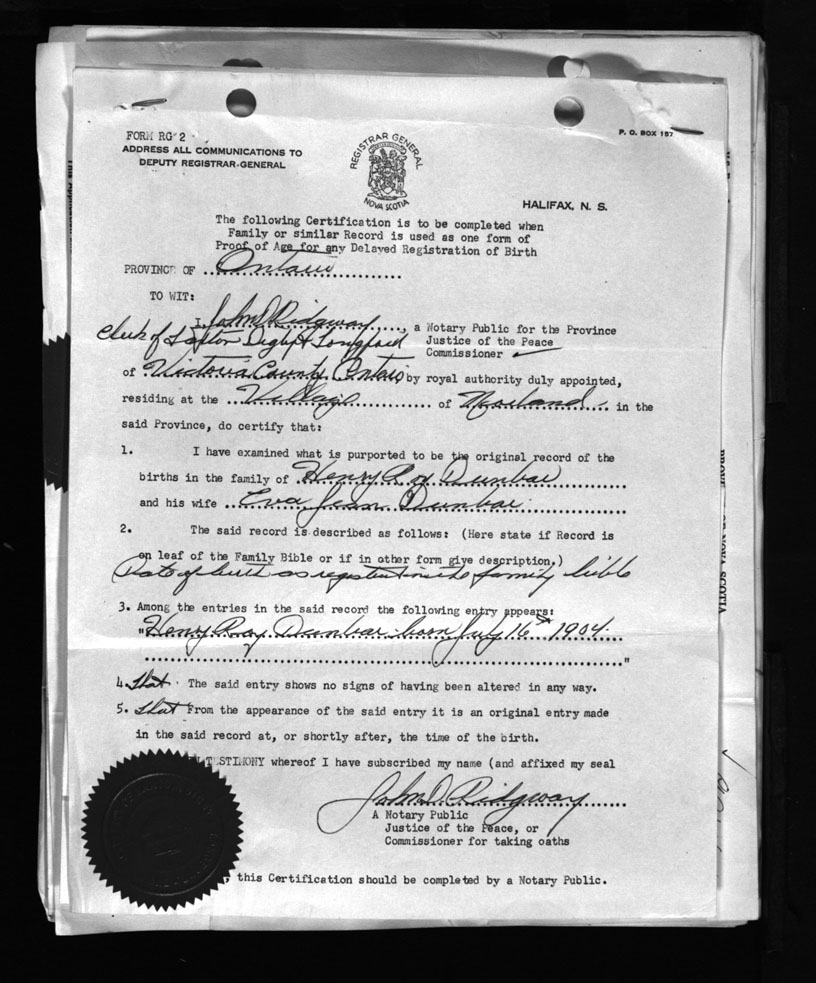 FORM RG 2
ADDRESS ALL COMMUNICATIONS TO
DEPUTY REGISTRAR-GENERAL
REGISTRAR GENERAL
NOVA SCOTIA
P. O. BOX 157
HALIFAX, N. S.
The following Certification is to be completed when
Family or similar Record is used as one form of
Proof of Age for any Delayed Registration of Birth
PROVINCE OF Ontario
TO WIT:
I, John D Ridgway, a Notary Public for the Province
Clerk of Laxton Digby & Longford Justice of the Peace
Commissioner
of Victoria County, Ontario by royal authority duly appointed,
residing at the Village of Norland in the
said Province, do certify that:
1. I have examined what is purported to be the original record of the
births in the family of Henry Roy Dunbar
and his wife Eva Jean Dunbar
2. The said record is described as follows: (Here state if Record is
on leaf of the Family Bible or if in other form give description.)
Date of birth as registered in the family bible
3. Among the entries in the said record the following entry appears:
"Henry Ray Dunbar born July 16 1904
"
4. That The said entry shows no signs of having been altered in any way.
5. That From the appearance of the said entry it is an original entry made
in the said record at, or shortly after, the time of the birth.
TESTIMONY whereof I have subscribed my name (and affixed my seal
John D. Ridgway
A Notary Public
Justice of the Peace, or
Commissioner for taking oaths
, this Certification should be completed by a Notary Public.